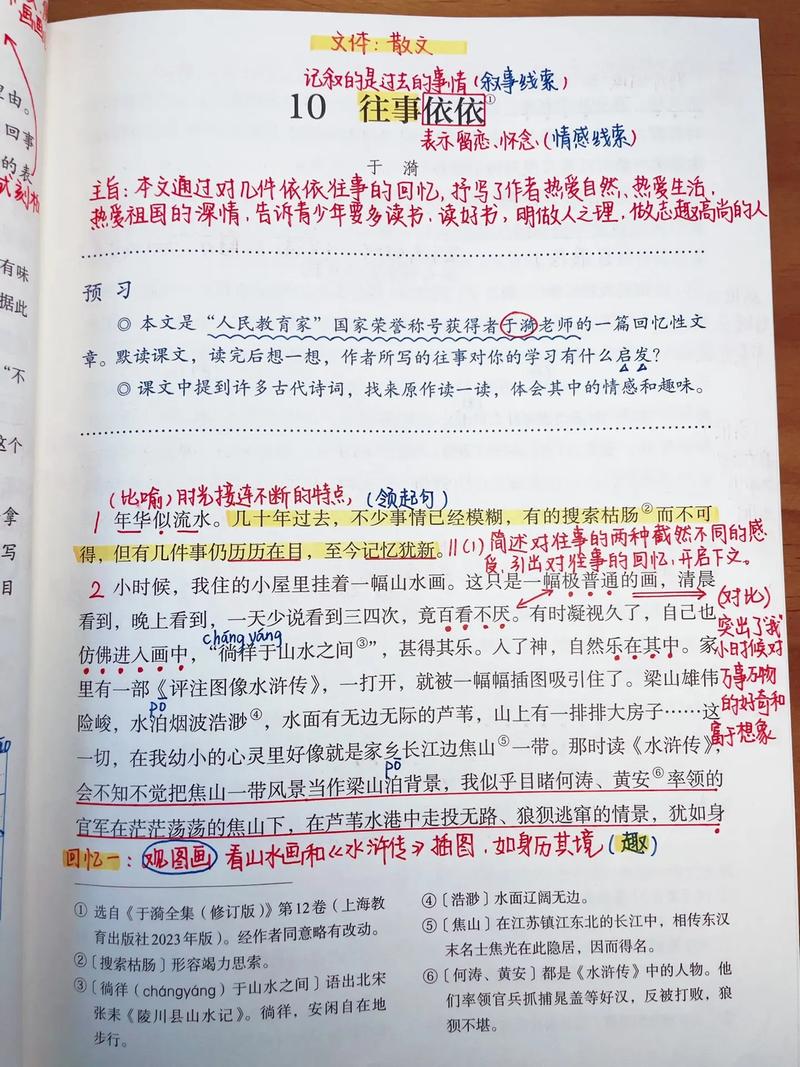 文体：散文
记叙的是过去的事情（叙事线索）
10 往事依依①
表示留恋、怀念（情感线索）
于 漪
主旨：本文通过对几件依依往事的回忆，抒写了作者热爱自然、热爱生活，
热爱祖国的深情，告诉青少年要多读书、读好书，明做人之理，做志趣高尚的人
预 习
◎ 本文是“人民教育家”国家荣誉称号获得者于漪老师的一篇回忆性文
章。默读课文，读完后想一想，作者所写的往事对你的学习有什么启发？
◎ 课文中提到许多古代诗词，找来原作读一读，体会其中的情感和趣味。
（比喻）时光接连不断的特点，（领起句）
1 年华似流水。几十年过去，不少事情已经模糊，有的搜索枯肠②而不可
得，但有几件事仍历历在目，至今记忆犹新。‖(1) 简述对往事的两种截然不同的感
受，引出对往事的回忆，开启下文。
2 小时候，我住的小屋里挂着一幅山水画。这只是一幅极普通的画，清晨
看到，晚上看到，一天少说看到三四次，竟百看不厌。有时凝视久了，自己也
cháng yáng
仿佛进入画中，“徜徉于山水之间③”，甚得其乐。入了神，自然乐在其中。家
里有一部《评注图像水浒传》，一打开，就被一幅幅插图吸引住了。梁山雄伟
pō
险峻，水泊烟波浩渺④，水面有无边无际的芦苇，山上有一排排大房子……这
一切，在我幼小的心灵里好像就是家乡长江边焦山⑤一带。那时读《水浒传》，
pō
会不知不觉把焦山一带风景当作梁山泊背景，我似乎目睹何涛、黄安⑥率领的
官军在茫茫荡荡的焦山下，在芦苇水港中走投无路、狼狈逃窜的情景，犹如身
（对比）
突出了“我”
小时候对
万事万物
的好奇和
富于想象
回忆一：观图画 看山水画和《水浒传》插图，如身历其境（趣）
① 选自《于漪全集（修订版）》第12卷（上海教
育出版社2023年版）。经作者同意略有改动。
②〔搜索枯肠〕形容竭力思索。
③〔徜徉（chángyáng）于山水之间〕语出北宋
张耒《陵川县山水记》。徜徉，安闲自在地
步行。
④〔浩渺〕水面辽阔无边。
⑤〔焦山〕在江苏镇江东北的长江中，相传东汉
末名士焦光在此隐居，因而得名。
⑥〔何涛、黄安〕都是《水浒传》中的人物。他
们率领官兵抓捕晁盖等好汉，反被打败，狼
狈不堪。
理由。
回事
的表
有味
据此
“不
这个
拿
写
目